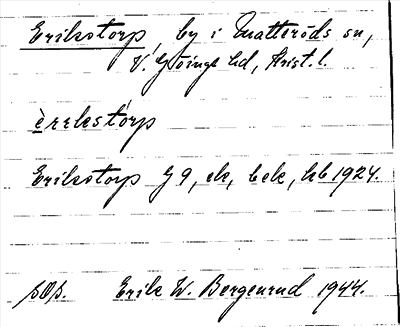 Erikstorp, by i Matteröds sn,
V. Göinge hd, Krist. l.
èrrkstórp
Erikstorp G 9, ek, bek, hb 1924.
sOs. Erik W. Bergenrud 1944.